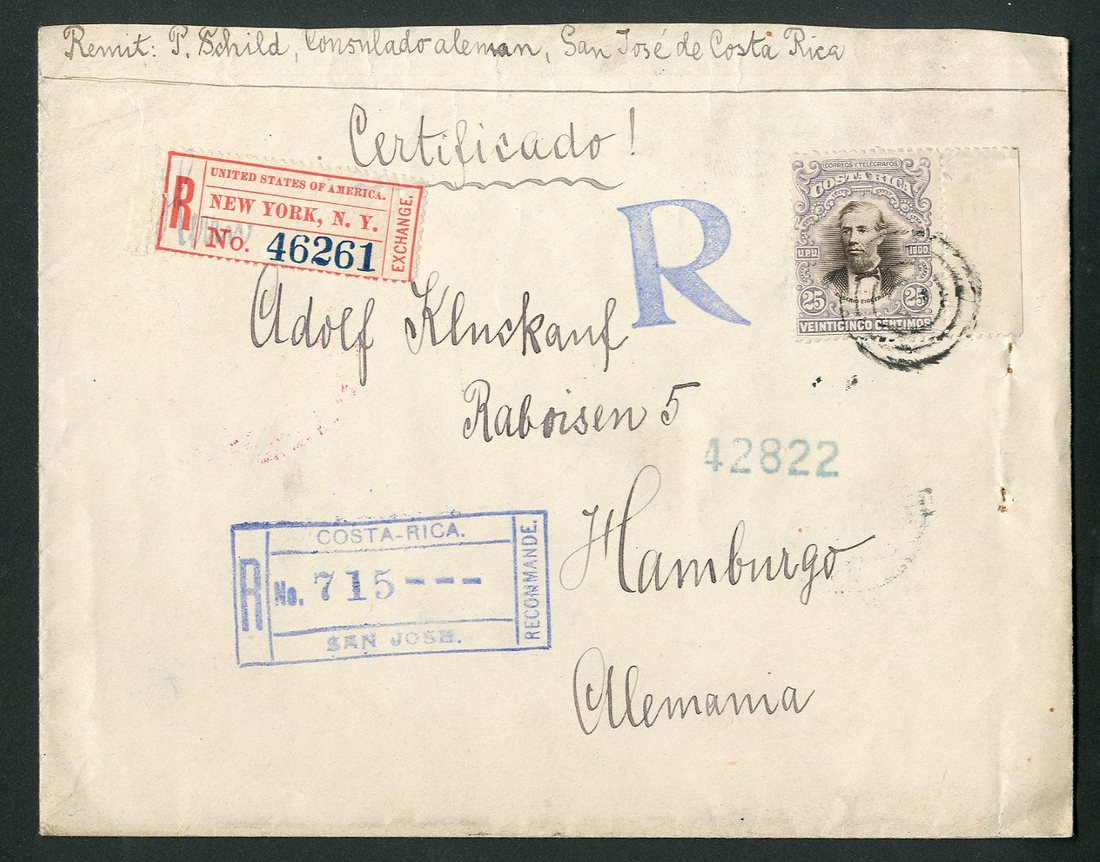 Remit: P. Schild, Consulado aleman, San José de Costa Rica
Certificado!
R
UNITED STATES OF AMERICA.
NEW YORK, N. Y.
No. 46261
EXCHANGE.
R
CORREOS Y TELEGRAFOS
COSTA RICA
U.P.U. 1900
25 25
VEINTICINCO CENTIMOS
Adolf Kluckauf
Raboisen 5
42822
Hamburgo
Alemania
R
COSTA-RICA.
No. 715---
SAN JOSE.
RECOMMANDE.